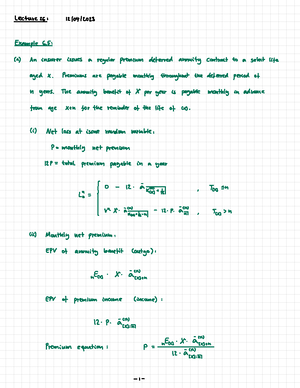 Lecture 26: 12/07/2023
Example 6.5:
(a) An insurer issues a regular premium deferred annuity contract to a select life
aged x. Premiums are payable monthly throughout the deferred period of
n years. The annuity benefit of X per year is payable monthly in advance
from age x+n for the remainder of the life of (x).
(i) Net loss at issue random variable:
P = monthly net premium
12P = total premium payable in a year
0 - 12.
(ii) Monthly net premium:
EPV of annuity benefit (outgo):
EPV of premium income (income):
12 · P ·
Premium equation: P =
-1-